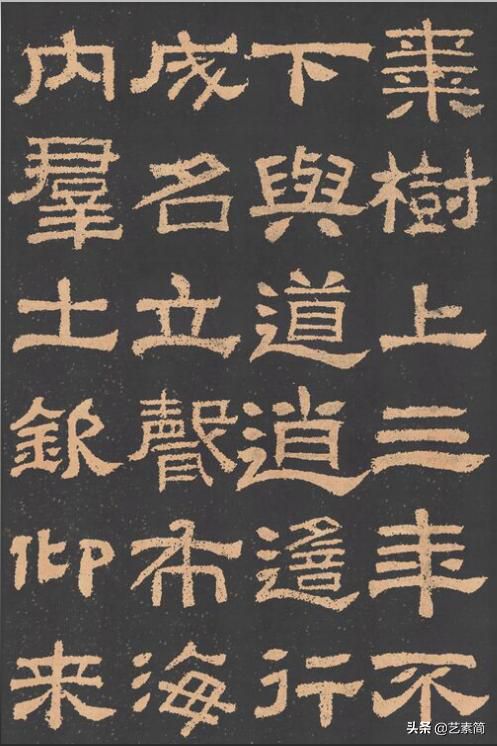 棗樹上三年不
下與道逍遙行
成名立聲布海
內羣士欽仰来
头条 @艺素简